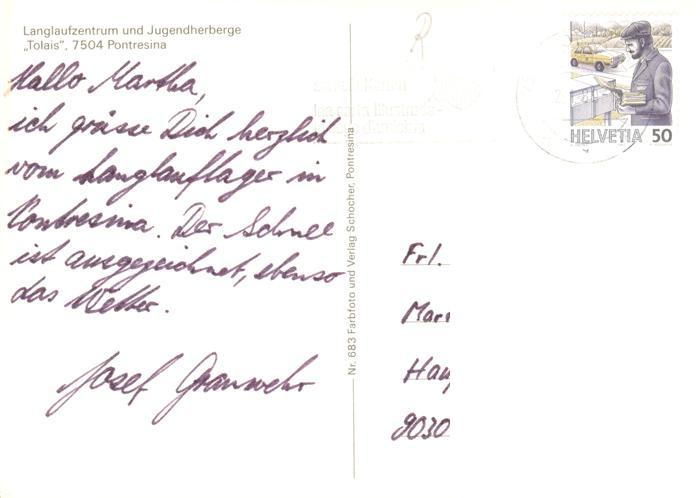 Langlaufzentrum und Jugendherberge
„Tolais", 7504 Pontresina
Hallo Martha,
ich grüsse Dich herzlich
vom Langlauflager in
Pontresina. Der Schnee
ist ausgezeichnet, ebenso
das Wetter.
Josef
Nr. 683 Farbfoto und Verlag Schocher, Pontresina
R
HELVETIA 50
Frl.
Mar
Hau
9030